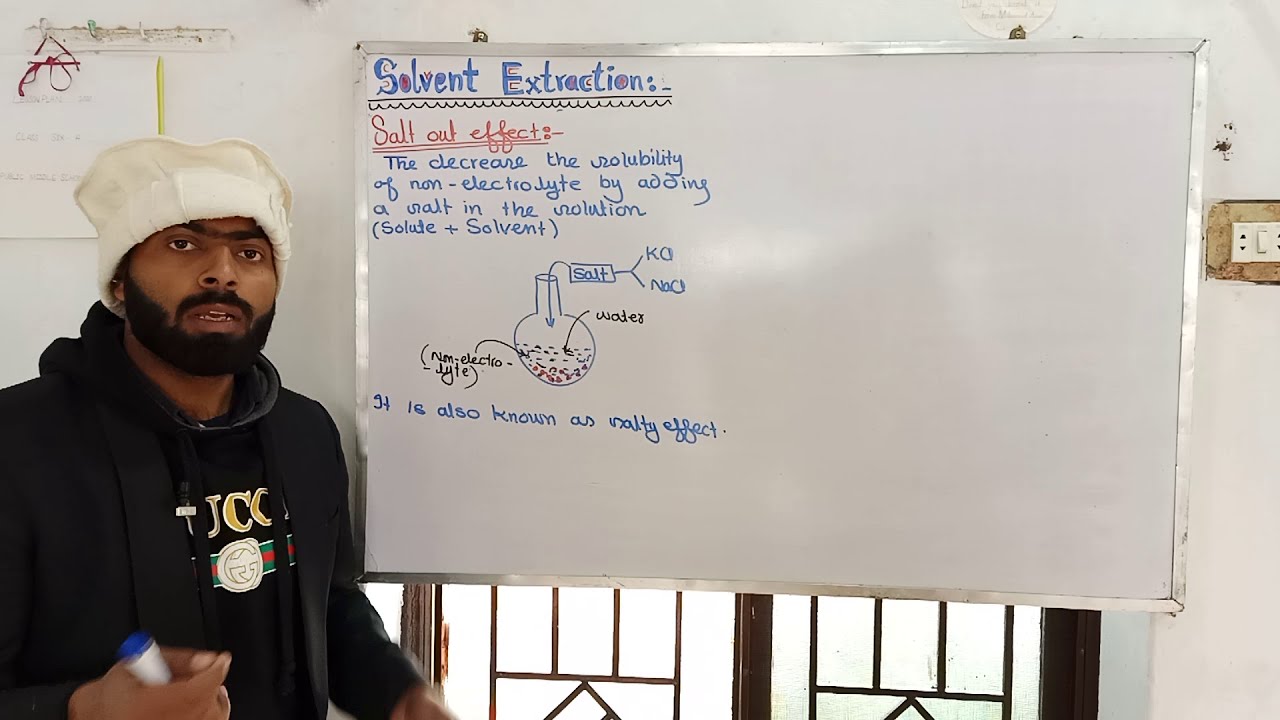 Solvent Extraction:-
Salt out effect:-
The decrease the solubility
of non-electrolyte by adding
a salt in the solution
(Solute + Solvent)
KCl
Salt
NaCl
water
(Non-electro-
-lyte)
It is also known as salty effect.
LESSON PLAN
CLASS
PUBLIC MIDDLE
UCC